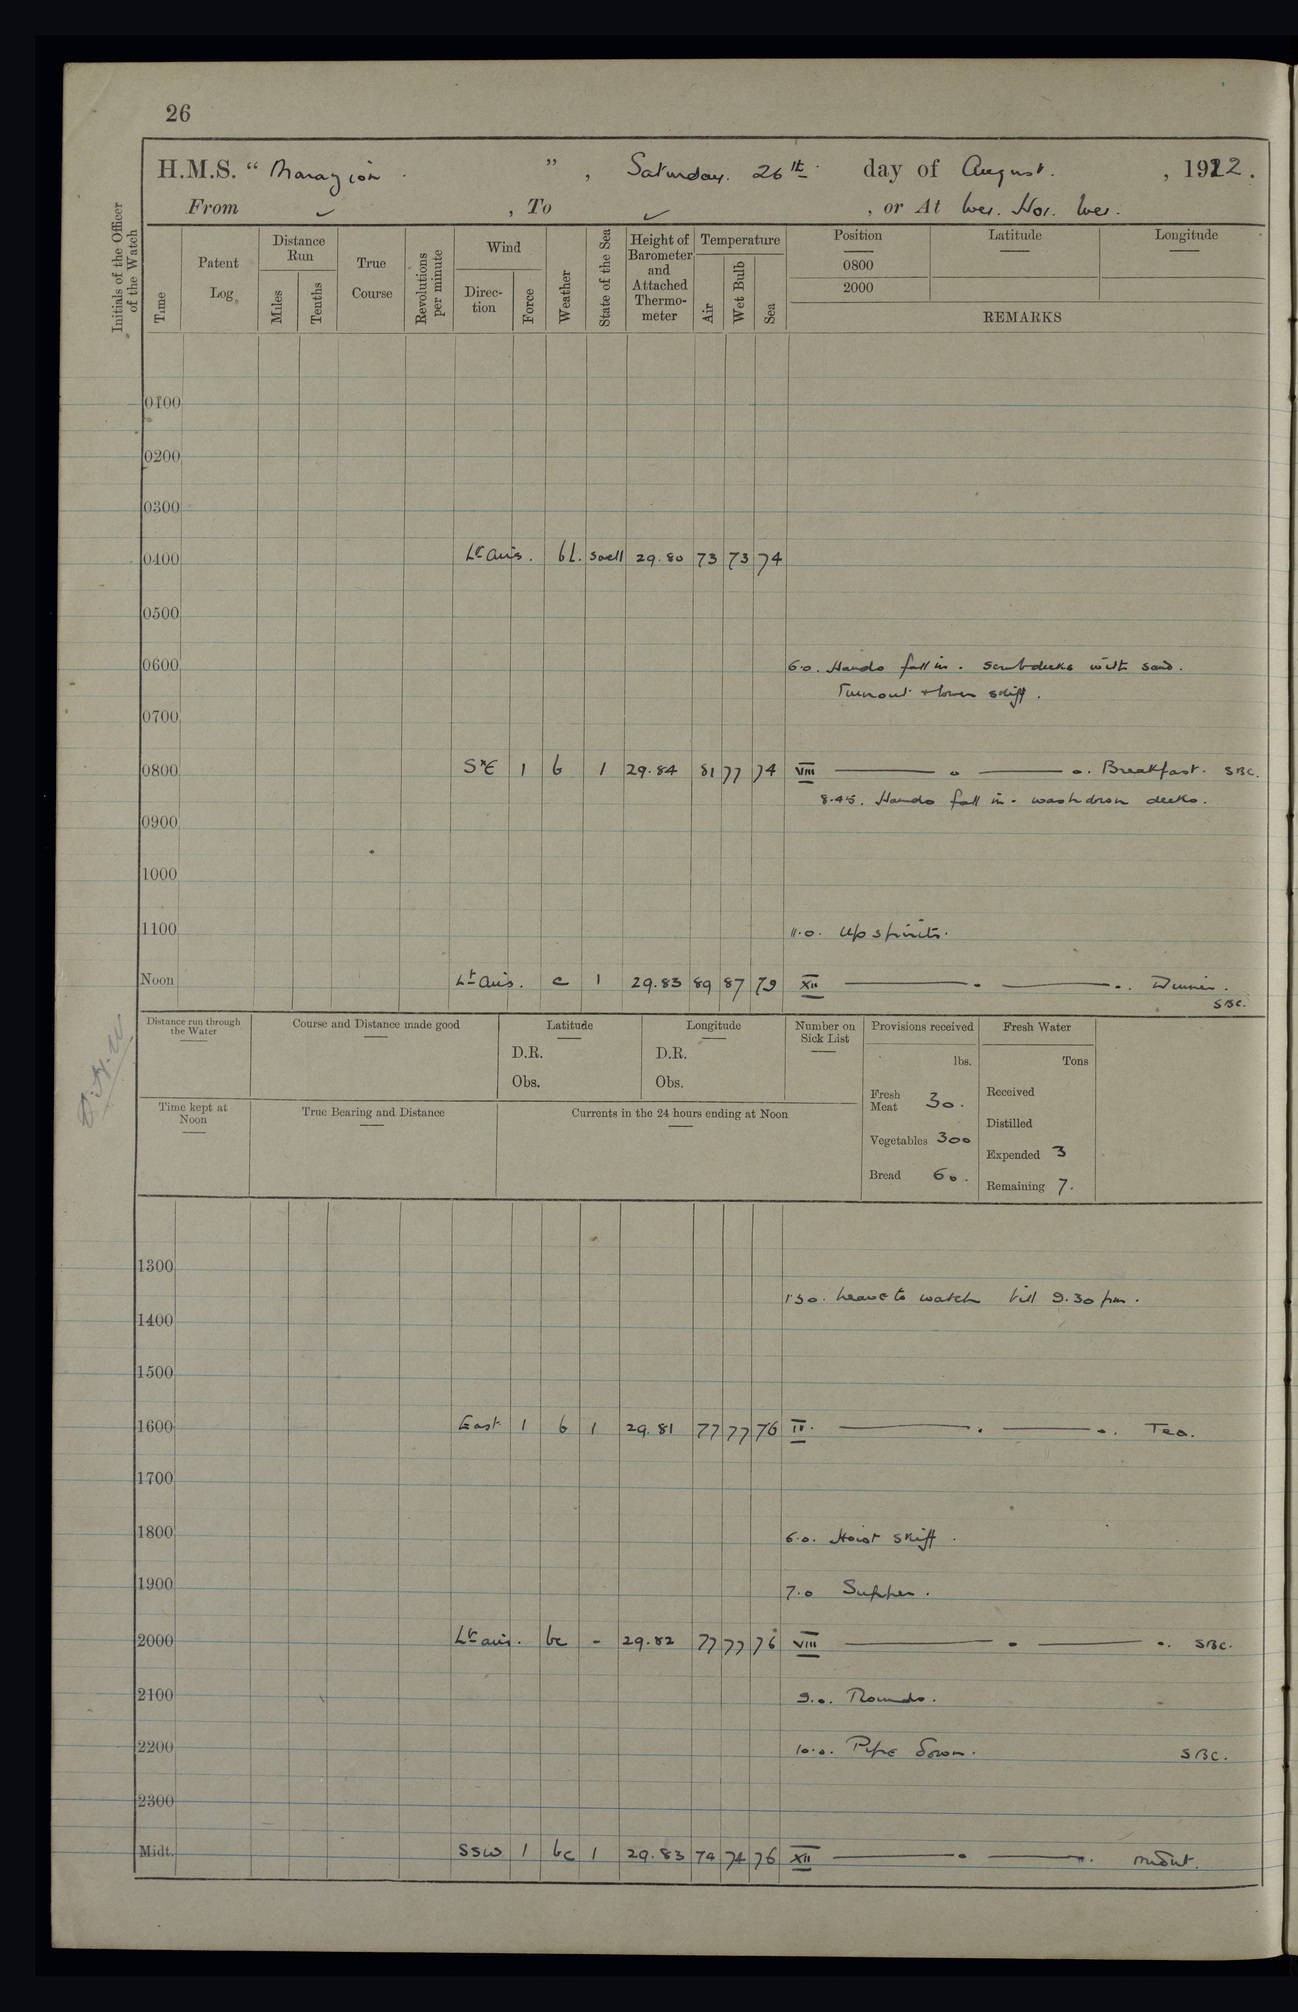 26
H.M.S. " Marazion . " , Saturday. 26th day of August. , 1922.
From ✓ , To ✓ , or At Wei. Hai. Wei.
Initials of the Officer of the Watch
Time
Patent Log
Distance Run
Miles
Tenths
True Course
Revolutions per minute
Wind
Direction
Force
Weather
State of the Sea
Height of Barometer and Attached Thermometer
Temperature
Air
Wet Bulb
Sea
Position
Latitude
Longitude
0800
2000
REMARKS
0100
0200
0300
0400 Lt airs. bc. swell 29.80 73 73 74
0500
0600 6.0. Hands fall in. Scrub decks with sand.
Turnout & lower skiff.
0700
0800 SxE 1 b 1 29.84 81 77 74 VIII Breakfast. SBC.
8.45. Hands fall in. wash down decks.
0900
1000
1100 11.0. Up spirits.
Noon Lt airs. c 1 29.83 89 87 79 XII Dinner.
SBC.
Distance run through the Water
Course and Distance made good
Latitude
D.R.
Obs.
Longitude
D.R.
Obs.
Number on Sick List
Provisions received
lbs.
Fresh Meat 30.
Vegetables 300
Bread 60.
Fresh Water
Tons
Received
Distilled
Expended 3
Remaining 7.
Time kept at Noon
True Bearing and Distance
Currents in the 24 hours ending at Noon
1300
1.30. Leave to watch till 9.30 pm.
1400
1500
1600 East 1 b 1 29.81 77 77 76 IV. Tea.
1700
1800 6.0. Hoist skiff.
1900 7.0 Supper.
2000 Lt airs. bc - 29.82 77 77 76 VIII SBC.
2100 9.0. Rounds.
2200 10.0. Pipe down. SBC.
2300
Midt. SSW 1 bc 1 29.83 74 74 76 XII midnt.